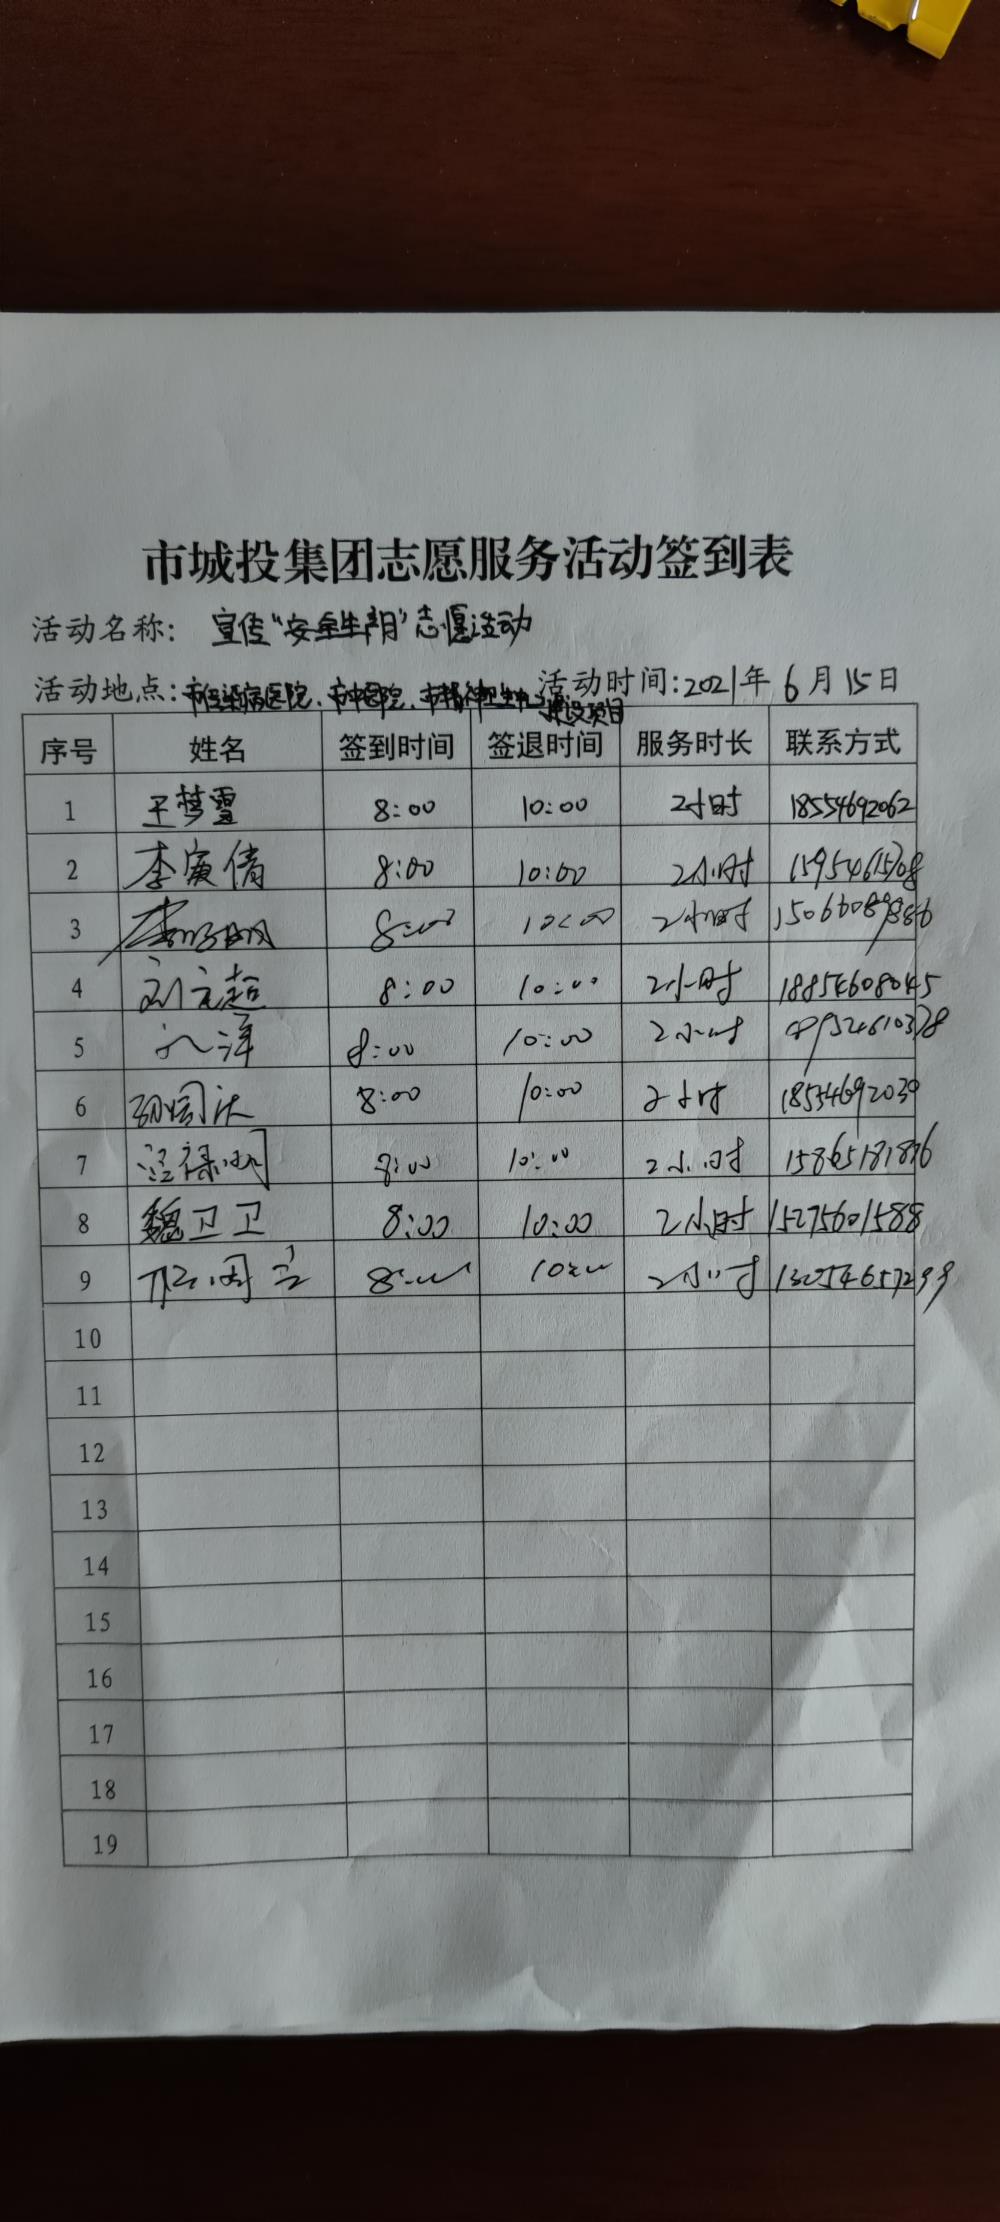 市城投集团志愿服务活动签到表
活动名称： 宣传“安全生产月”志愿活动
活动地点：市传染病医院、市中医院、市精神卫生中心 活动时间：2021年 6月15日
建设项目
序号 姓名 签到时间 签退时间 服务时长 联系方式
1 王梦雪 8:00 10:00 2小时 18554692062
2 李寅倩 8:00 10:00 2小时 15954615708
3 8:00 10:00 2小时 15066089886
4 刘元超 8:00 10:00 2小时 18854608045
5 8:00 10:00 2小时
6 8:00 10:00 2小时 18554692039
7 8:00 10:00 2小时 15865181896
8 魏卫卫 8:00 10:00 2小时 15275601588
9 8:00 10:00 2小时 13054657299
10
11
12
13
14
15
16
17
18
19